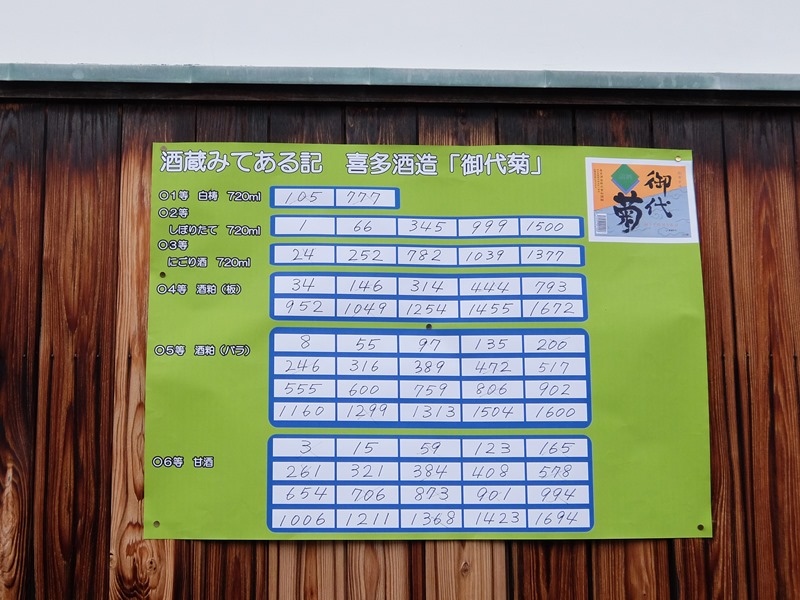 酒蔵みてある記 喜多酒造「御代菊」
御代
菊
○1等 白檮 720ml 105 777
○2等
しぼりたて 720ml 1 66 345 999 1500
○3等
にごり酒 720ml 24 252 782 1039 1377
○4等 酒粕(板) 34 146 314 444 793
952 1049 1254 1455 1672
○5等 酒粕(バラ) 8 55 97 135 200
246 316 389 472 517
555 600 759 806 902
1160 1299 1313 1504 1600
○6等 甘酒 3 15 59 123 165
261 321 384 408 578
654 706 873 901 994
1006 1211 1368 1423 1694